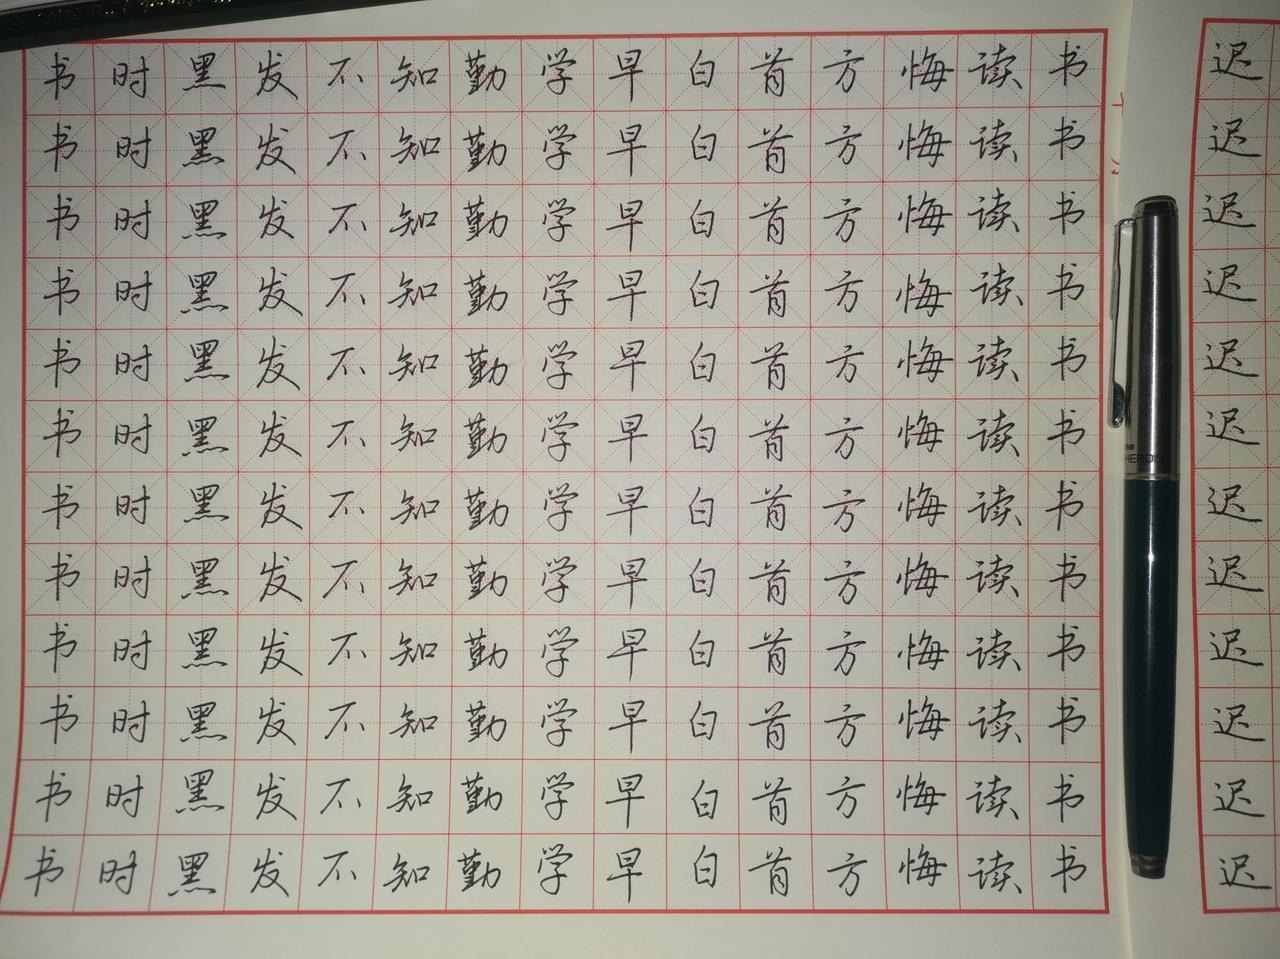 书时黑发不知勤学早白首方悔读书迟
书时黑发不知勤学早白首方悔读书迟
书时黑发不知勤学早白首方悔读书迟
书时黑发不知勤学早白首方悔读书迟
书时黑发不知勤学早白首方悔读书迟
书时黑发不知勤学早白首方悔读书迟
书时黑发不知勤学早白首方悔读书迟
书时黑发不知勤学早白首方悔读书迟
书时黑发不知勤学早白首方悔读书迟
书时黑发不知勤学早白首方悔读书迟
书时黑发不知勤学早白首方悔读书迟
书时黑发不知勤学早白首方悔读书迟